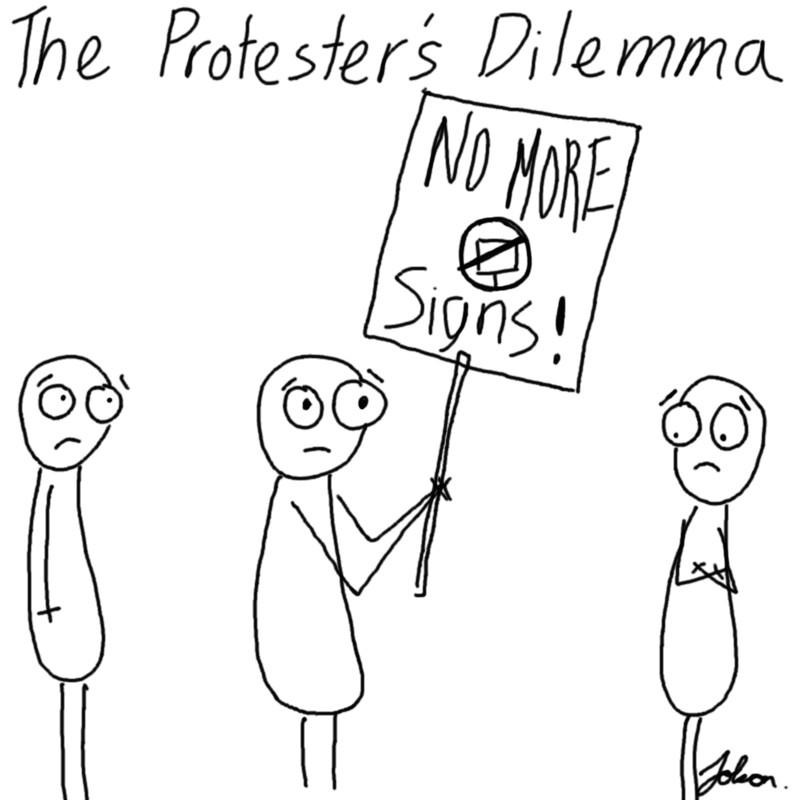 The Protester's Dilemma
NO MORE
Signs!